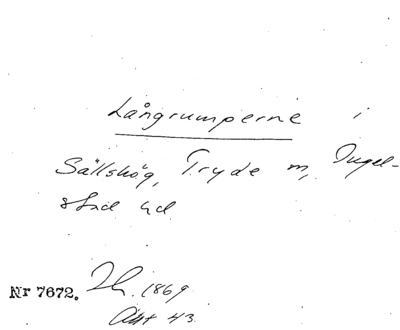 Långrumperne i
Sällshög, Tryde m, Ingel-
stad hd.
Nr 7672. 1869
43.